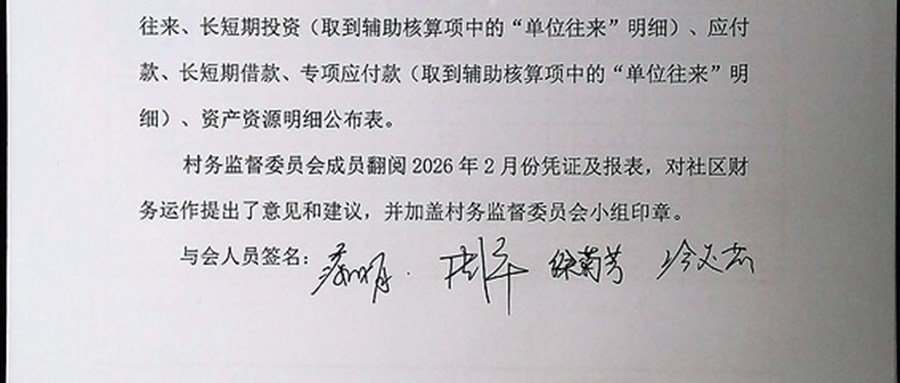 往来、长短期投资（取到辅助核算项中的“单位往来”明细）、应付
款、长短期借款、专项应付款（取到辅助核算项中的“单位往来”明
细）、资产资源明细公布表。
村务监督委员会成员翻阅 2026 年 2 月份凭证及报表，对社区财
务运作提出了意见和建议，并加盖村务监督委员会小组印章。
与会人员签名：